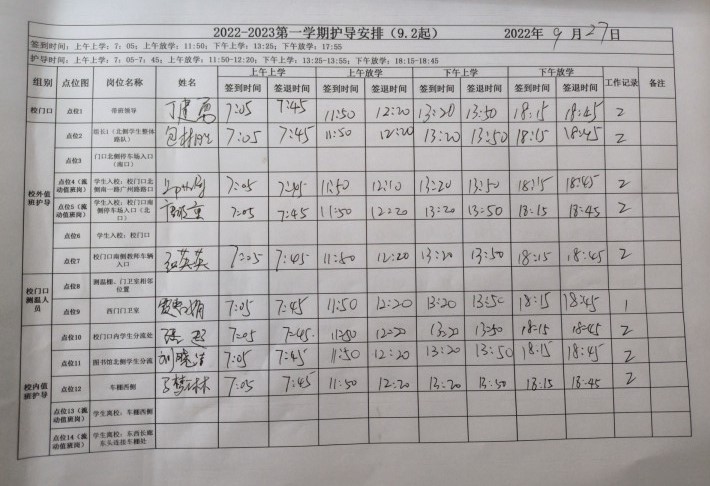 2022-2023第一学期护导安排（9.2起） 2022年9月27日
签到时间：上午上学：7：05；上午放学：11:50；下午上学：13:25；下午放学：17:55
护导时间：上午上学：7：05-7：45；上午放学：11:50-12:20；下午上学：13:25-13:55；下午放学：18:15-18:45
组别 点位图 岗位名称 姓名 上午上学 上午放学 下午上学 下午放学 工作记录 备注
签到时间 签退时间 签到时间 签退时间 签到时间 签退时间 签到时间 签退时间
校门口 点位1 带班领导 丁建勇 7:05 7:45 11:50 12:20 13:20 13:50 18:15 18:45 2
校外值班护导
点位2 组长1（北侧学生整体路队） 7:05 7:45 11:50 12:20 13:20 13:50 18:15 18:45 2
点位3 门口北侧停车场入口（南口）
点位4（流动值班岗） 学生入校：校门口北侧南一路广州路路口 7:05 7:45 11:50 12:20 13:20 13:50 18:15 18:45 2
点位5（流动值班岗） 学生入校：校门口南侧停车场入口（北口） 7:05 7:45 11:50 12:20 13:20 13:50 18:15 18:45 2
点位6 学生入校：校门口
点位7 校门口南侧教师车辆入口 英英 7:05 7:45 11:50 12:20 13:20 13:50 18:15 18:45 2
校门口测温人员
点位8 测温棚、门卫室相邻位置
点位9 西门门卫室 7:05 7:45 11:50 12:20 13:20 13:50 18:15 18:45 1
校内值班护导
点位10 校门口内学生分流处 7:05 7:45 11:50 12:20 13:20 13:50 18:15 18:45 2
点位11 图书馆北侧学生分流 刘晓洁 7:05 7:45 11:50 12:20 13:20 13:50 18:15 18:45 2
点位12 车棚西侧 梦琳 7:05 7:45 11:50 12:20 13:20 13:50 18:15 18:45 2
点位13（流动值班岗） 学生离校：车棚西侧
点位14（流动值班岗） 学生离校：东西长廊东头连接车棚处